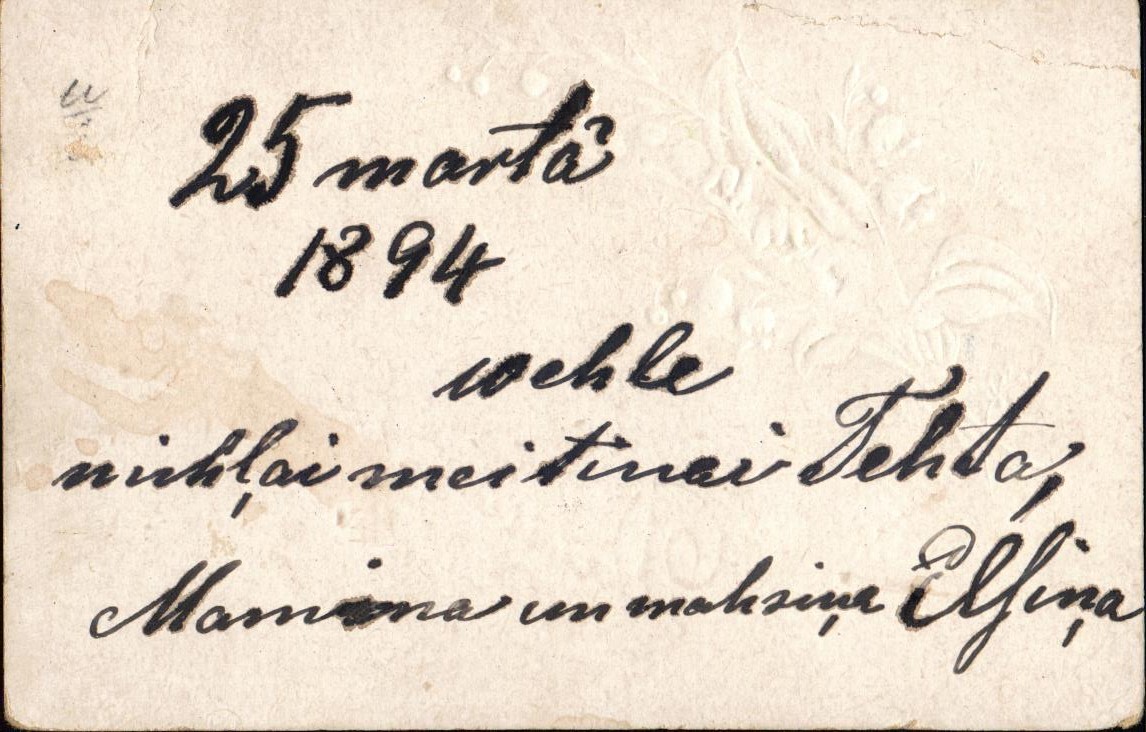 25 martâ
1894
wehle
mihļai meitinai Tehta,
Mamina un mahsiņa Elfiņa